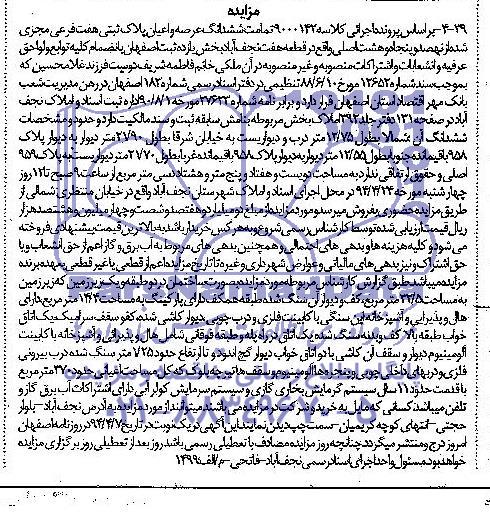 مزایده
۴-۳۹- براساس پرونده اجرائی کلاسه ۹۰۰۰۱۴۲ تمامت ششدانگ عرصه و اعیان پلاک ثبتی هفت فرعی مجزی
شده از نهصد و پنجاه و هشت اصلی واقع در قطعه هفت نجف آباد بخش یازده ثبت اصفهان بانضمام کلیه توابع و لواحق
عرفیه و انشعابات و اشتراکات منصوبه و غیر منصوبه در آن ملکی خانم فاطمه شریف دوست فرزند غلامحسین که
بموجب سند شماره ۱۲۶۵۲ مورخ ۸۸/۶/۱۰ تنظیمی در دفتر اسناد رسمی شماره ۱۸۲ اصفهان در رهن مدیریت شعب
بانک مهر اقتصاد استان اصفهان قرار دارد و برابر نامه شماره ۲۷۶۳۳ مورخه ۹۰/۸/۱ اداره ثبت اسناد و املاک نجف
آباد در صفحه ۱۳۱ دفتر جلد ۳۹۲ املاک بخش مربوطه بنامش سابقه ثبت و سند مالکیت دارد و حدود و مشخصات
ششدانگ آن: شمالا بطول ۱۲/۷۵ متر درب و دیواریست به خیابان شرقا بطول ۲۱/۹۰ متر دیوار به دیوار پلاک
۹۵۸ باقیمانده جنوبا بطول ۱۲/۵۵ متر دیوار به دیوار پلاک ۹۵۸ باقیمانده غربا بطول ۲۱/۷۰ متر دیواریست به پلاک ۹۵۹
اصلی و حقوق ارتفاقی ندارد به مساحت دویست و هفتاد و پنج متر و هشتاد سی متر مربع از ساعت ۹ صبح تا ۱۲ روز
چهارشنبه مورخه ۹۴/۴/۲۴ در محل اجرای اسناد و املاک شهرستان نجف آباد واقع در خیابان منتظری شمالی از
طریق مزایده حضوری بفروش میرسد و مورد مزایده از مبلغ دو میلیارد و هفتصد و شصت و چهار میلیون و هشتصد هزار
ریال قیمت ارزیابی شده توسط کارشناس رسمی شروع و به هر کس خریدار باشد به بالاترین قیمت پیشنهادی فروخته
می شود و کلیه هزینه ها و بدهی های احتمالی و همچنین بدهی های مربوط به آب برق و گاز اعم از حق انشعاب و یا
حق اشتراک و نیز بدهی های مالیاتی و عوارض شهرداری و غیره تا تاریخ مزایده اعم از قطعی یا غیر قطعی بعهده برنده
مزایده میباشد طبق گزارش کارشناس مربوطه مورد مزایده بصورت ساختمان در دو طبقه و یک زیرزمین که زیرزمین
به مساحت ۳۲/۵ متر مربع، کف و دیوار آن سنگ شده طبقه همکف دارای پارکینگ به مساحت ۱۴۳ متر مربع دارای
هال و پذیرایی و آشپزخانه اپن سنگی با کابینت فلزی و درب چوبی، دیوار کاشی شده، کف و سقف سرامیک و یک اتاق
خواب طبقه بالا کف و بدنه سنگ شده یک اتاق در راه پله و طبقه فوقانی شامل هال و پذیرایی و آشپزخانه با کابینت
آلومینیوم دیوار و سقف آن کاشی با دو اتاق خواب دیوار گچ اندود و تا ارتفاع حدود ۷۲۵ متر سنگ شده درب بیرونی
فلزی و دربهای داخلی چوبی و پنجره ها آلومینیوم و سقف ها تیرچه بلوک که کل مساحت اعیانی حدود ۳۷۰ متر مربع
با قدمت حدود ۱۱ سال، سیستم گرمایش بخاری گازی و سیستم سرمایش کولر آبی دارای اشتراکات آب برق گاز و
تلفن میباشد کسانی که مایل به خرید و شرکت در مزایده می باشند میتوانند از مورد مزایده به آدرس نجف آباد - بلوار
حجتی - انتهای کوچه کریمیان - سمت چپ دیدن نمایند این آگهی در یک نوبت در تاریخ ۹۴/۴/۷ در روزنامه اصفهان
امروز درج و منتشر میگردد چنانچه روز مزایده مصادف با تعطیلی رسمی باشد روز بعد از تعطیلی روز برگزاری مزایده
خواهد بود. مسئول واحد اجرای اسناد رسمی نجف آباد - فاتحی - م/الف: ۱۴۹۹